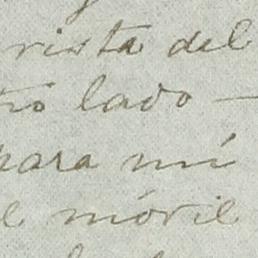 vista del
tro lado —
para mí
el móvil